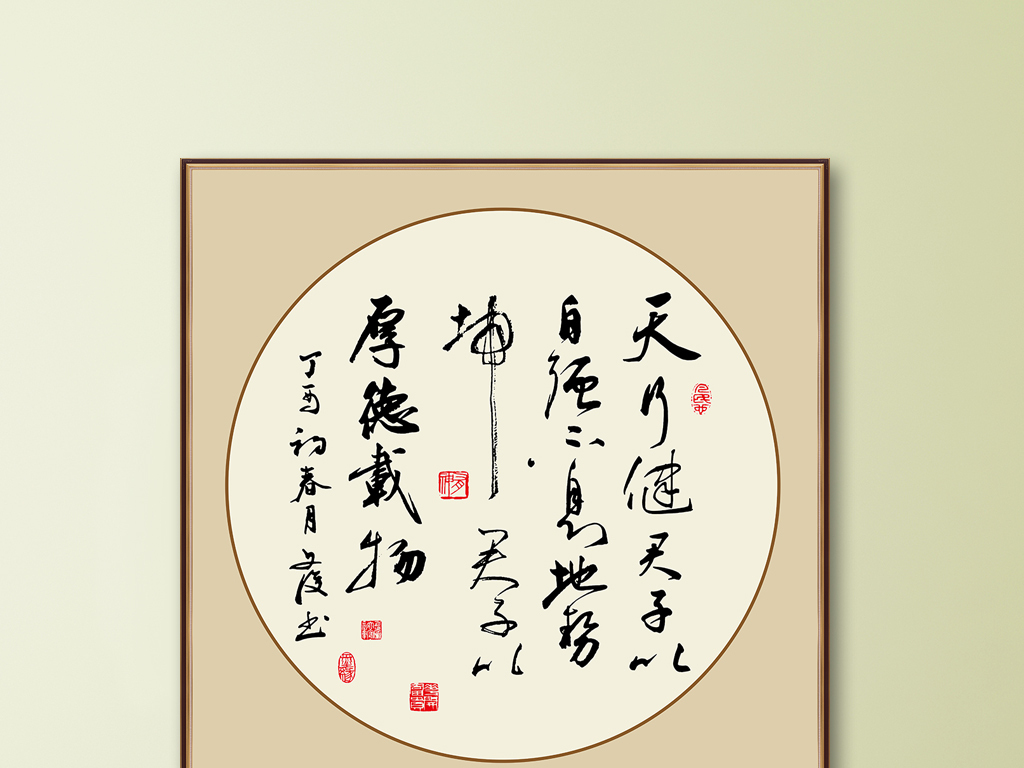 天行健君子以
自强不息地势
坤君子以
厚德载物
丁酉初春月
书